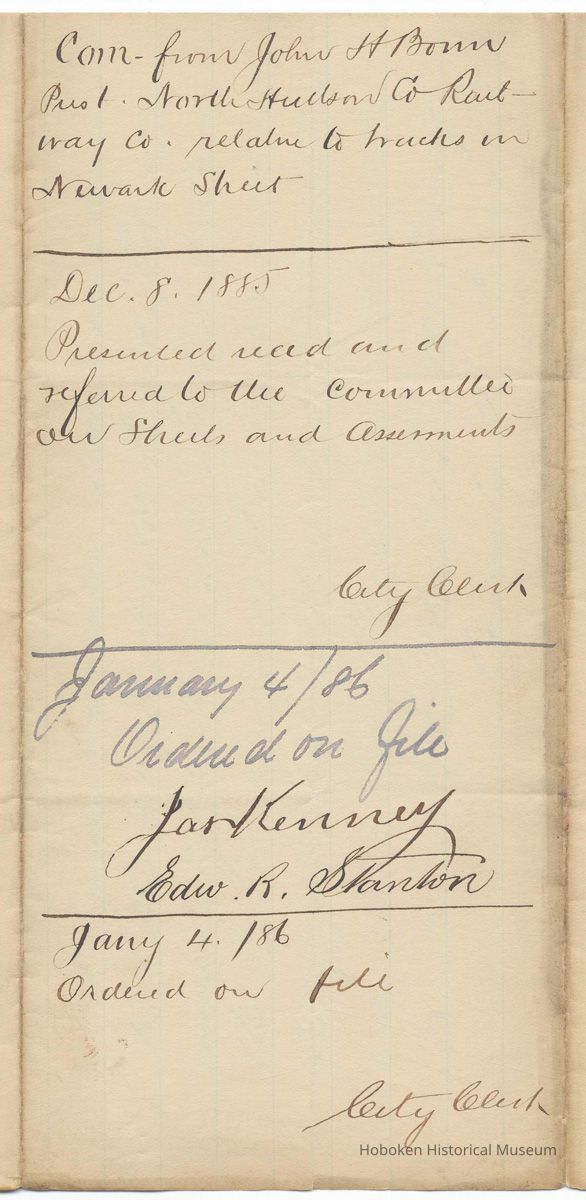 Com - from John H Bonn
Prest. North Hudson Co Rail-
way Co. relative to tracks in
Newark Street
Dec. 8. 1885
Presented read and
referred to the Committee
on Streets and Assesments
City Clerk
January 4/86
Ordered on file
Jas Kenney
Edw. R. Stanton
Jany 4. /86
Ordered on file
City Clerk
Hoboken Historical Museum